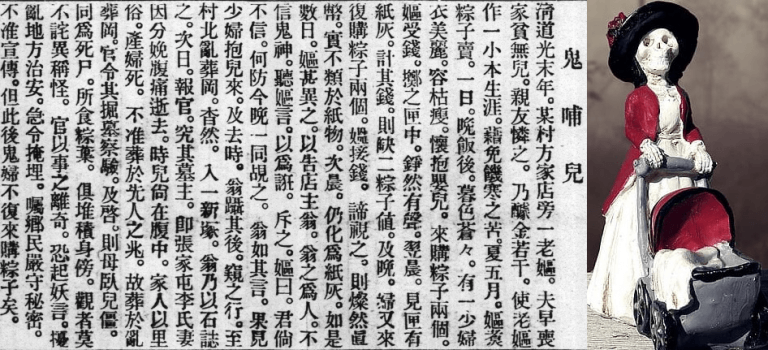 鬼哺兒
清道光末年。某村方家店旁一老嫗。夫早喪
家貧無兒。親友憐之。乃醵金若干。使老嫗
作一小本生涯。藉免饑寒之苦。夏五月。嫗蒸
粽子賣。一日。晚飯後。暮色蒼々。有一少婦
衣美麗。容枯瘦。懷抱嬰兒。來購粽子兩個。
嫗受錢。擲之匣中。錚然有聲。翌晨。見匣有
紙灰。計其錢。則缺二粽子値。及晚。婦又來
復購粽子兩個。嫗接錢。諦視之。則燦然眞
幣。實不類於紙物。次晨。仍化爲紙灰。如是
數日。嫗甚異之。以告店主翁。翁之爲人。不
信鬼神。聽嫗言。以爲誑。斥之。嫗曰。君倘
不信。何防今晚一同覘之。翁如其言。果見
少婦抱兒來。及去時。翁躡其後。窺之行。至
村北亂葬岡。杳然。入一新塚。翁乃以石誌
之。次日。報官。究其墓主。卽張家屯李氏妻
因分娩腹痛逝去。時兒尙在腹中。家人以里
俗。產婦死。不准葬於先人之兆。故葬於亂
葬岡。官令其掘墓察驗。及啓。則母臥兒僵。
同爲死尸。所食粽葉。俱堆積身傍。觀者莫
不詫異稱怪。官以事之離奇。恐起妖言。擾
亂地方治安。急令掩埋。囑鄉民嚴守秘密。
不准宣傳。但此後鬼婦不復來購粽子矣。